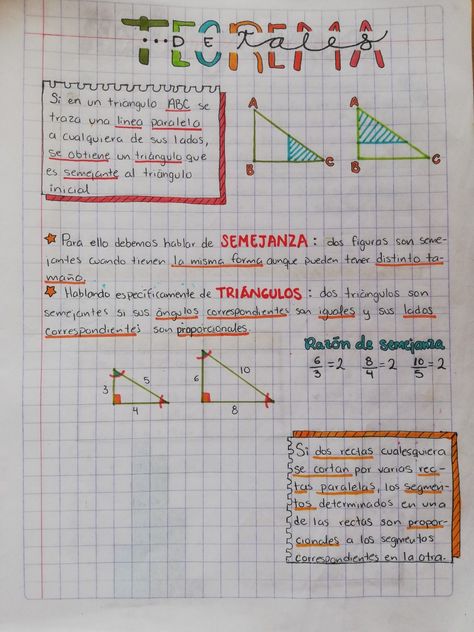 TEOREMA
...DE tales
Si en un triangulo ABC se
traza una linea paralela
a cualquiera de sus lados,
se obtiene un triángulo que
es semejante al triángulo
inicial
A
B
C
A
B
C
Para ello debemos hablar de SEMEJANZA: dos figuras son seme-
jantes cuando tienen la misma forma aunque pueden tener distinto ta-
maño.
Hablando especificamente de TRIÁNGULOS: dos triángulos son
semejantes si sus ángulos correspondientes son iguales y sus lados
correspondientes son proporcionales.
Razón de semejanza
6/3 = 2 8/4 = 2 10/5 = 2
3
5
4
6
10
8
Si dos rectas cualesquiera
se cortan por varias rec-
tas paralelas, los segmen-
tos determinados en una
de las rectas son propor-
cionales a los segmentos
correspondientes en la otra.